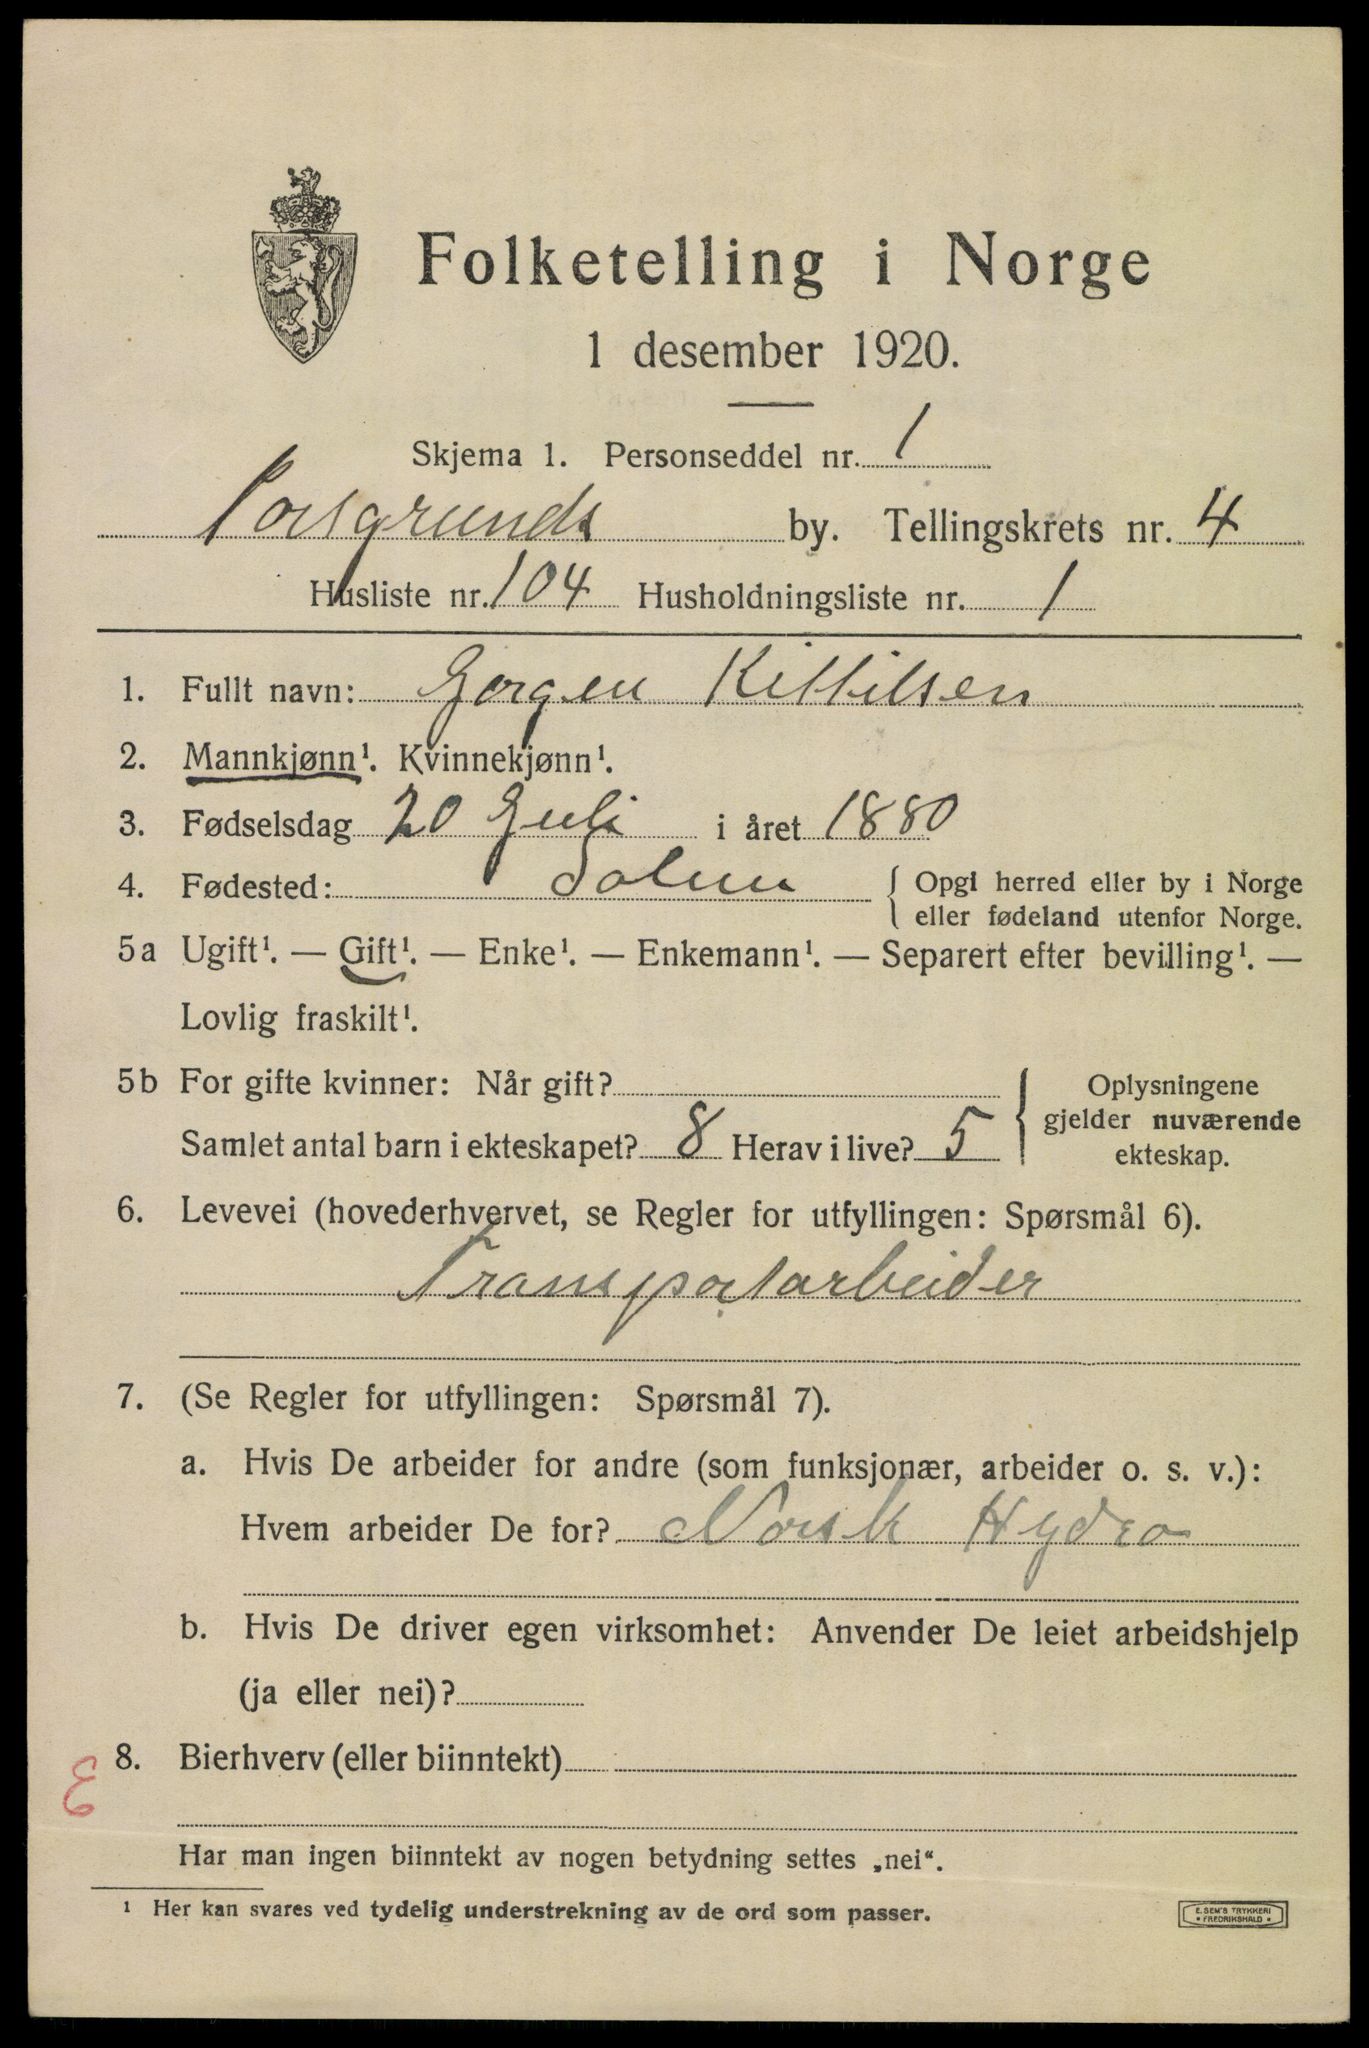 Folketelling i Norge
1 desember 1920.
Skjema 1. Personseddel nr. 1
Porsgrunds by. Tellingskrets nr. 4
Husliste nr. 104 Husholdningsliste nr. 1
1. Fullt navn: Jørgen Kittilsen
2. Mannkjønn¹. Kvinnekjønn¹.
3. Fødselsdag 20 Juli i året 1880
4. Fødested: Solum { Opgi herred eller by i Norge
eller fødeland utenfor Norge.
5a Ugift¹. — Gift¹. — Enke¹. — Enkemann¹. — Separert efter bevilling¹. —
Lovlig fraskilt¹.
5b For gifte kvinner: Når gift? { Oplysningene
gjelder nuværende
Samlet antal barn i ekteskapet? 8 Herav i live? 5 ekteskap.
6. Levevei (hovederhvervet, se Regler for utfyllingen: Spørsmål 6).
Transportarbeider
7. (Se Regler for utfyllingen: Spørsmål 7).
a. Hvis De arbeider for andre (som funksjonær, arbeider o. s. v.):
Hvem arbeider De for? Norsk Hydro
b. Hvis De driver egen virksomhet: Anvender De leiet arbeidshjelp
(ja eller nei)?
8. Bierhverv (eller biinntekt)
Har man ingen biinntekt av nogen betydning settes „nei“.
¹ Her kan svares ved tydelig understrekning av de ord som passer.
E. SEM'S TRYKKERI
* FREDRIKSHALD *